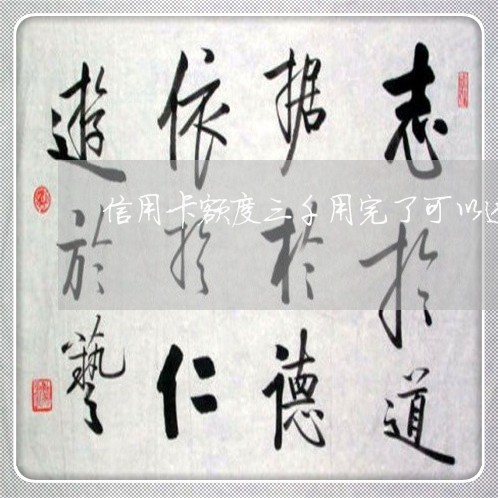 志扵道
据於德
依扵仁
遊於藝
信用卡额度三千用完了可以